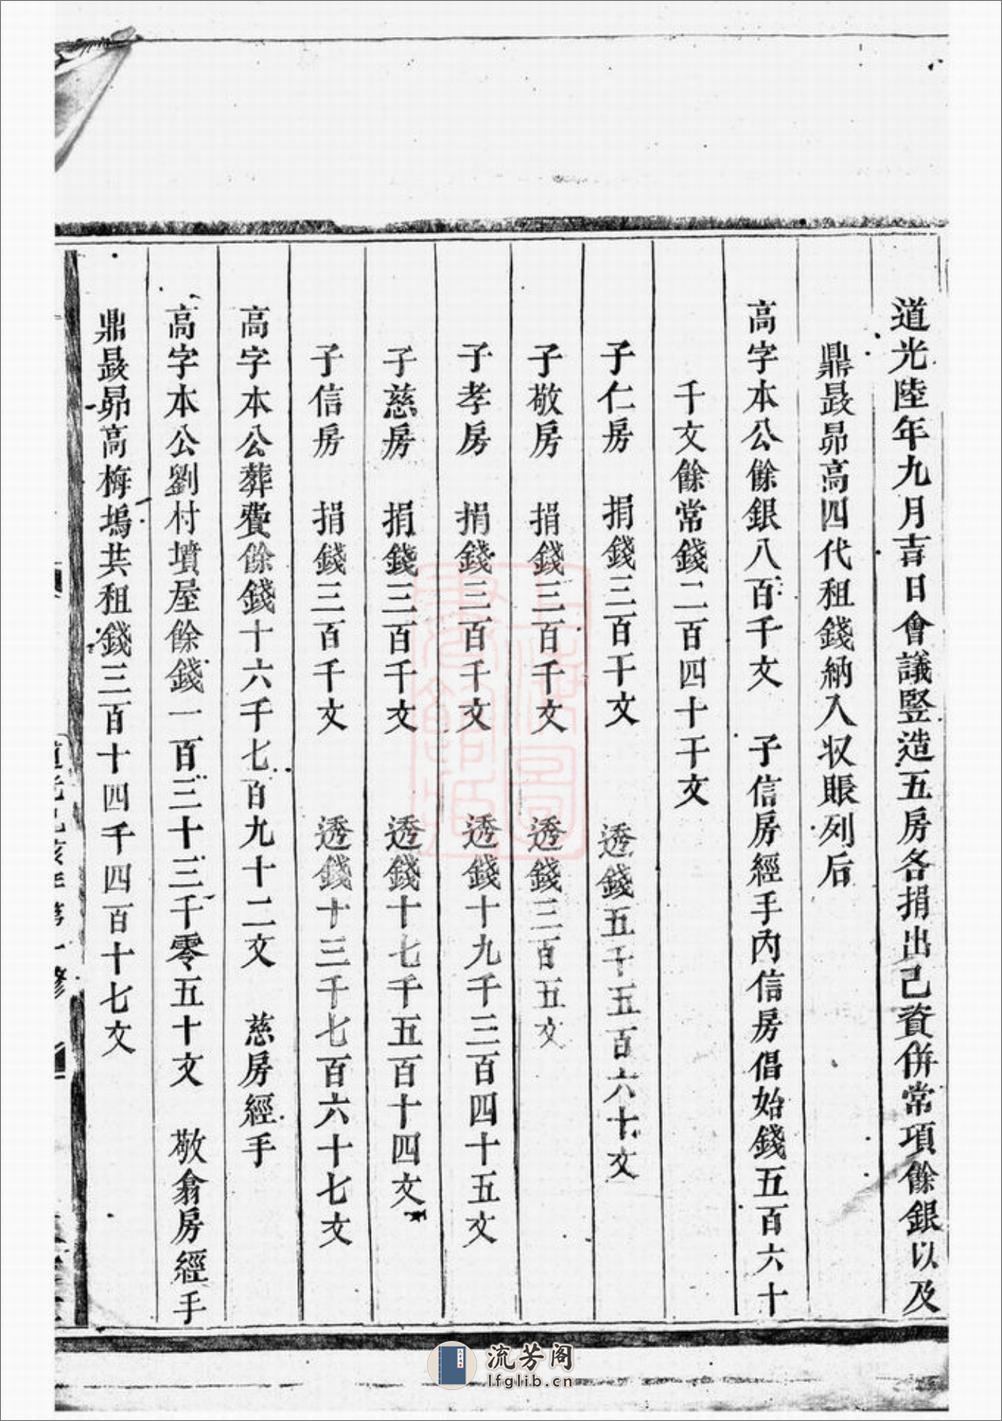 道光陸年九月吉日會議豎造五房各捐出己資併常項餘銀以及
鼎晸昴高四代租錢納入収賬列后
高字本公餘銀八百千文　子信房經手內信房倡始錢五百六十
千文餘常錢二百四十千文
子仁房　捐錢三百千文　透錢五千五百六十文
子敬房　捐錢三百千文　透錢三百五文
子孝房　捐錢三百千文　透錢十九千三百四十五文
子慈房　捐錢三百千文　透錢十七千五百十四文
子信房　捐錢三百千文　透錢十三千七百六十七文
高字本公葬費餘錢十六千七百九十二文　慈房經手
高字本公劉村墳屋餘錢一百三十三千零五十文　敬翕房經手
鼎晸昴高梅塢共租錢三百十四千四百十七文
流芳阁
lfglib.cn